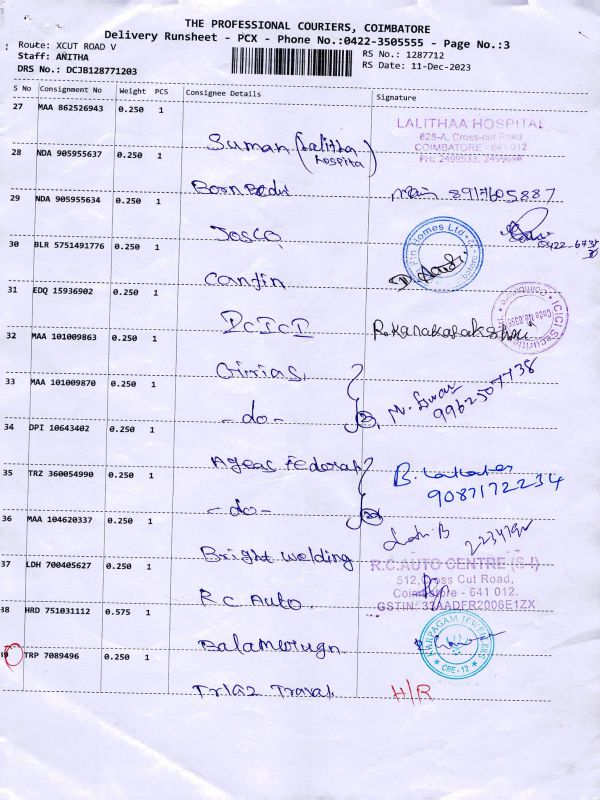 THE PROFESSIONAL COURIERS, COIMBATORE
Delivery Runsheet - PCX - Phone No.:0422-3505555 - Page No.:3
Route: XCUT ROAD V
RS No.: 1287712
Staff: ANITHA
RS Date: 11-Dec-2023
DRS No.: DCJB128771203
S No Consignment No Weight PCS Consignee Details Signature
27 MAA 862526943 0.250 1
Suman (Lalitha hospital)
LALITHAA HOSPITAL
628-A, Cross-cut Road
COIMBATORE - 641 012
PH: 2499533,
28 NDA 905955637 0.250 1
8917605887
29 NDA 905955634 0.250 1
Josco
0422-
30 BLR 5751491776 0.250 1
Canfin
Fin Homes Ltd
31 EDQ 15936902 0.250 1
ICICI Securities
Coimbatore
Code No.
32 MAA 101009863 0.250 1
33 MAA 101009870 0.250 1
-do-
9962507738
34 DPI 10643402 0.250 1
Ageas Federal
35 TRZ 360054990 0.250 1
-do-
9087172234
36 MAA 104620337 0.250 1
Bright Welding
37 LDH 700405627 0.250 1
R.C Auto.
R.C.AUTO CENTRE (S-I)
512, Cross Cut Road,
Coimbatore - 641 012.
GSTIN: 33AADFR2006E1ZX
38 HRD 751031112 0.575 1
KARPAGAM JEWELLERS
CBE-12
39 TRP 7089496 0.250 1
Travel
H/R